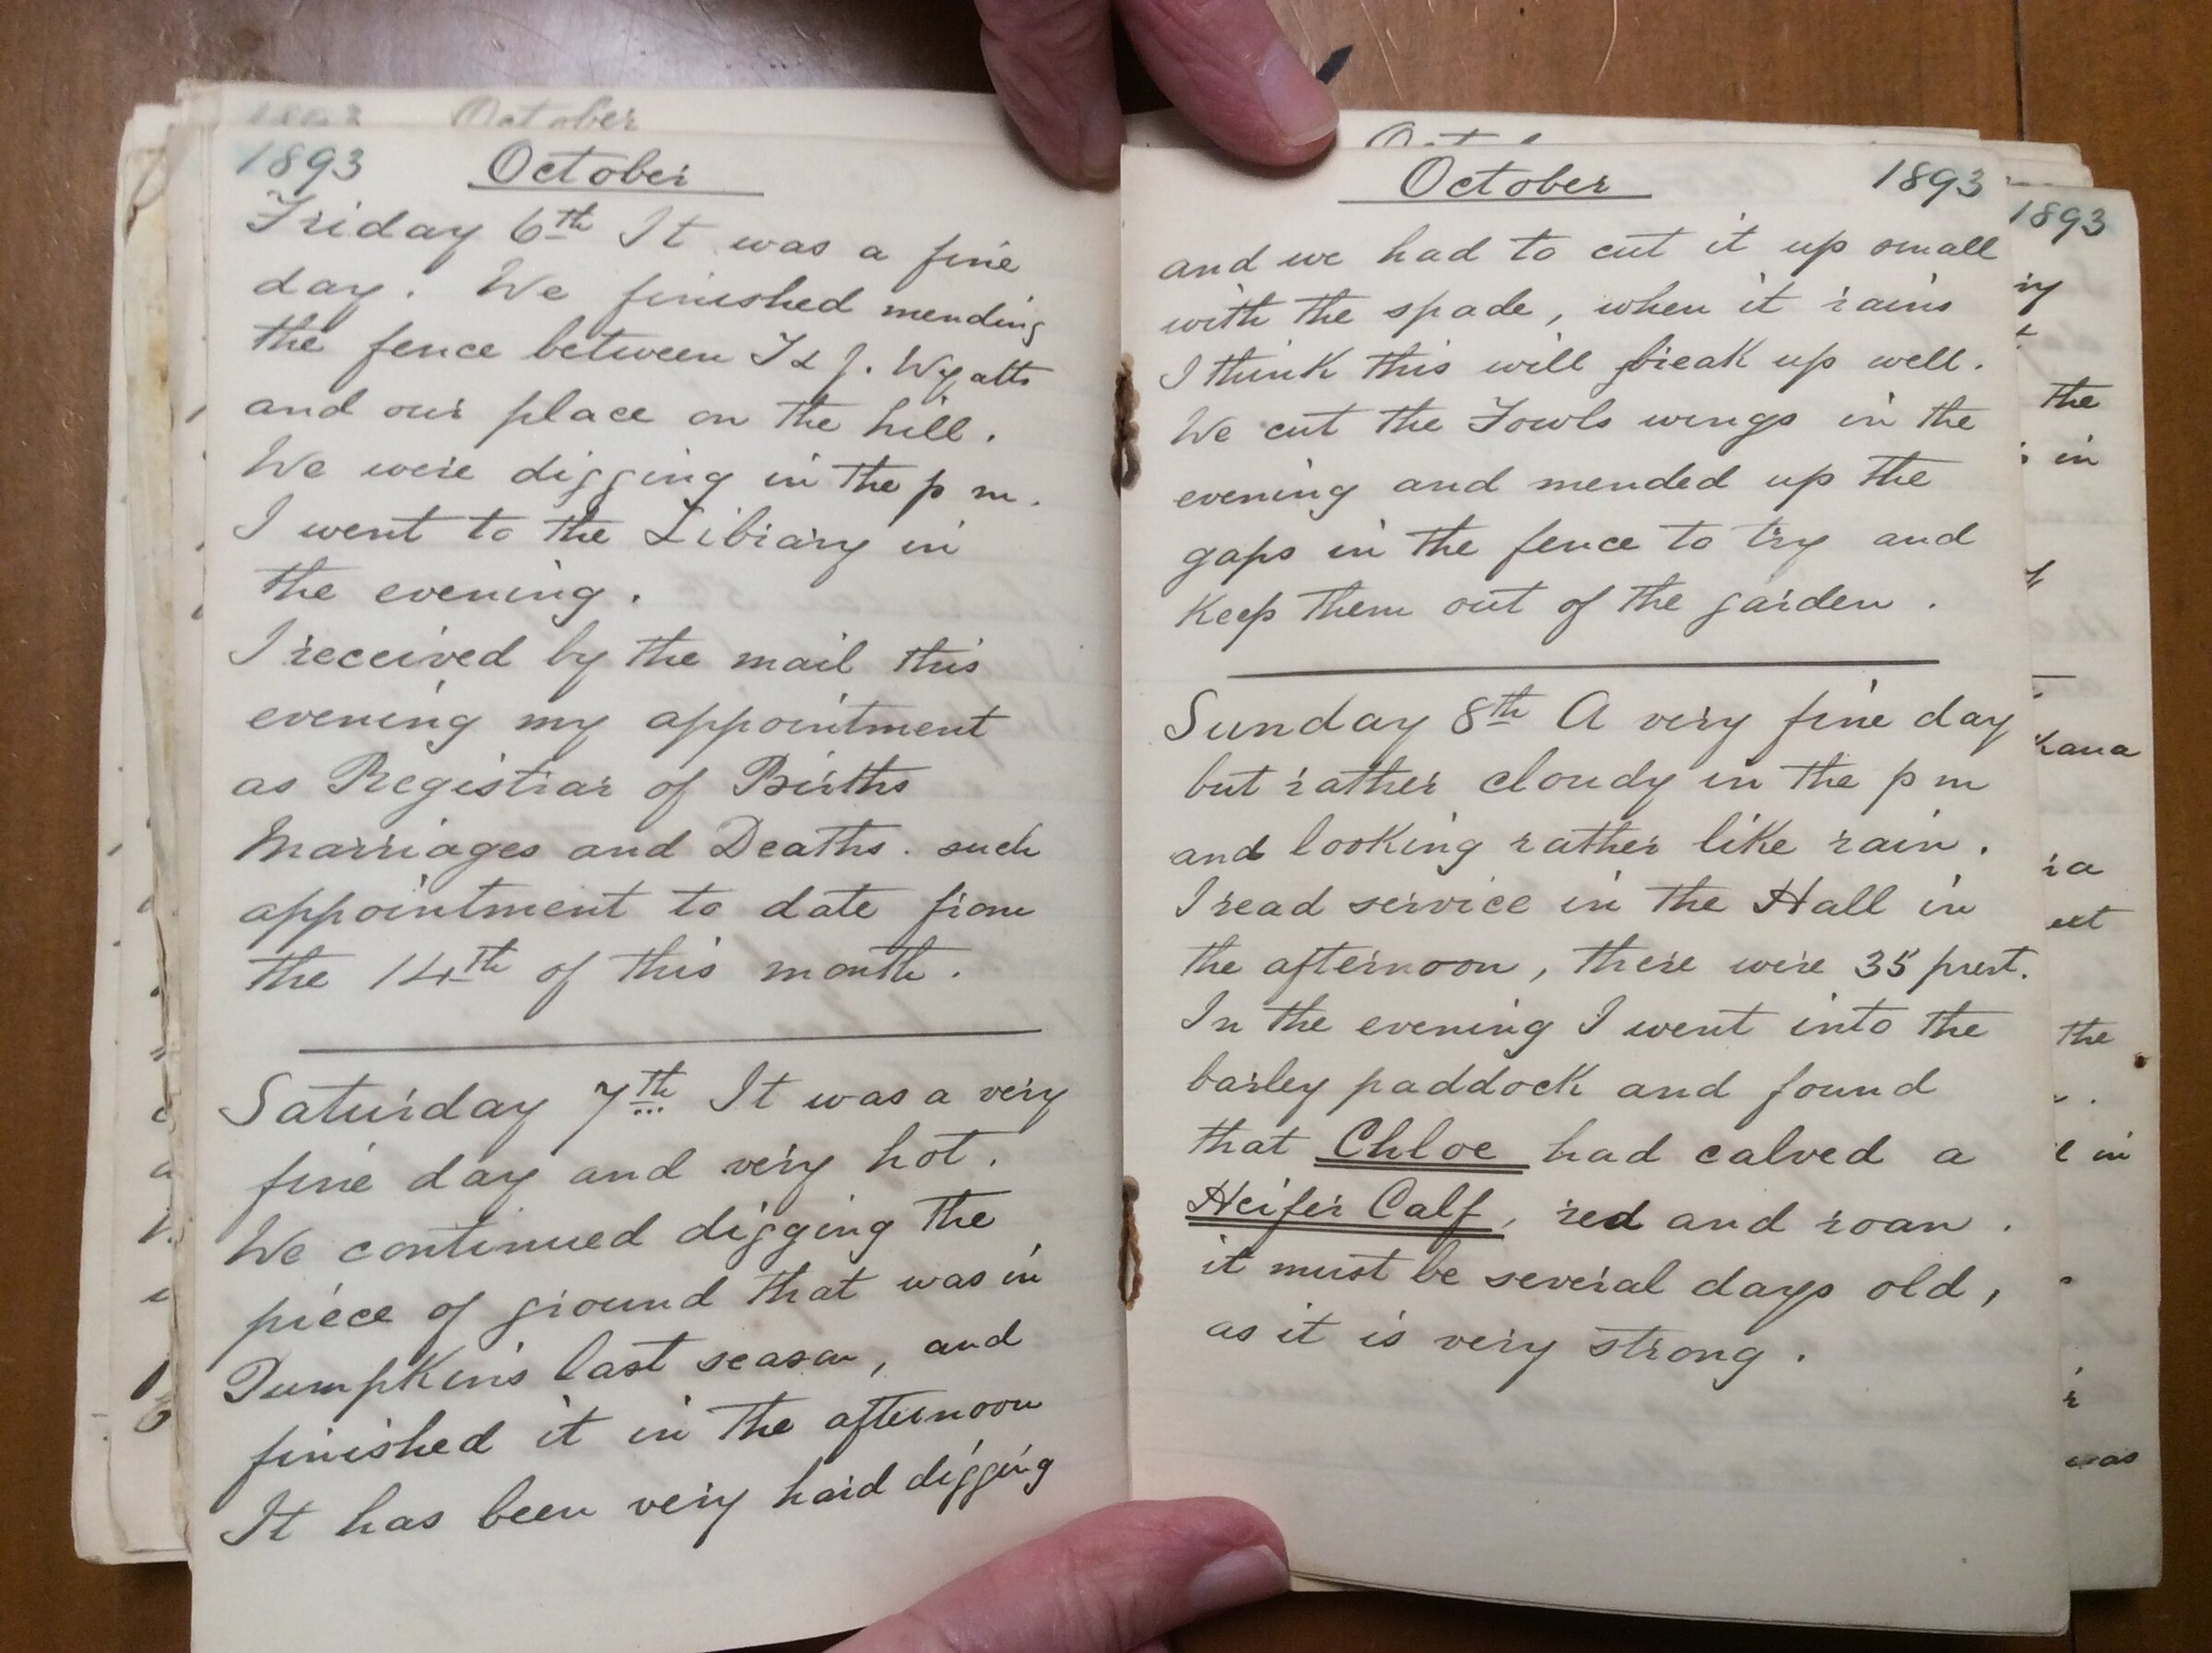 1893 October
1893 October
Friday 6th It was a fine
day. We finished mending
the fence between I & J. Wyatts
and our place on the hill.
We were digging in the p m.
I went to the Library in
the evening.
I received by the mail this
evening my appointment
as Registrar of Births
Marriages and Deaths. such
appointment to date from
the 14th of this month.
Saturday 7th It was a very
fine day and very hot.
We continued digging the
piece of ground that was in
Pumpkins last season, and
finished it in the afternoon
It has been very hard digging
October 1893
and we had to cut it up small
with the spade, when it rains
I think this will break up well.
We cut the Fowls wings in the
evening and mended up the
gaps in the fence to try and
Keep them out of the garden.
Sunday 8th A very fine day
but rather cloudy in the p m
and looking rather like rain.
I read service in the Hall in
the afternoon, there were 35 prest.
In the evening I went into the
barley paddock and found
that Chloe had calved a
Heifer Calf, red and roan.
it must be several days old,
as it is very strong.
1893
the
in
the
in
was